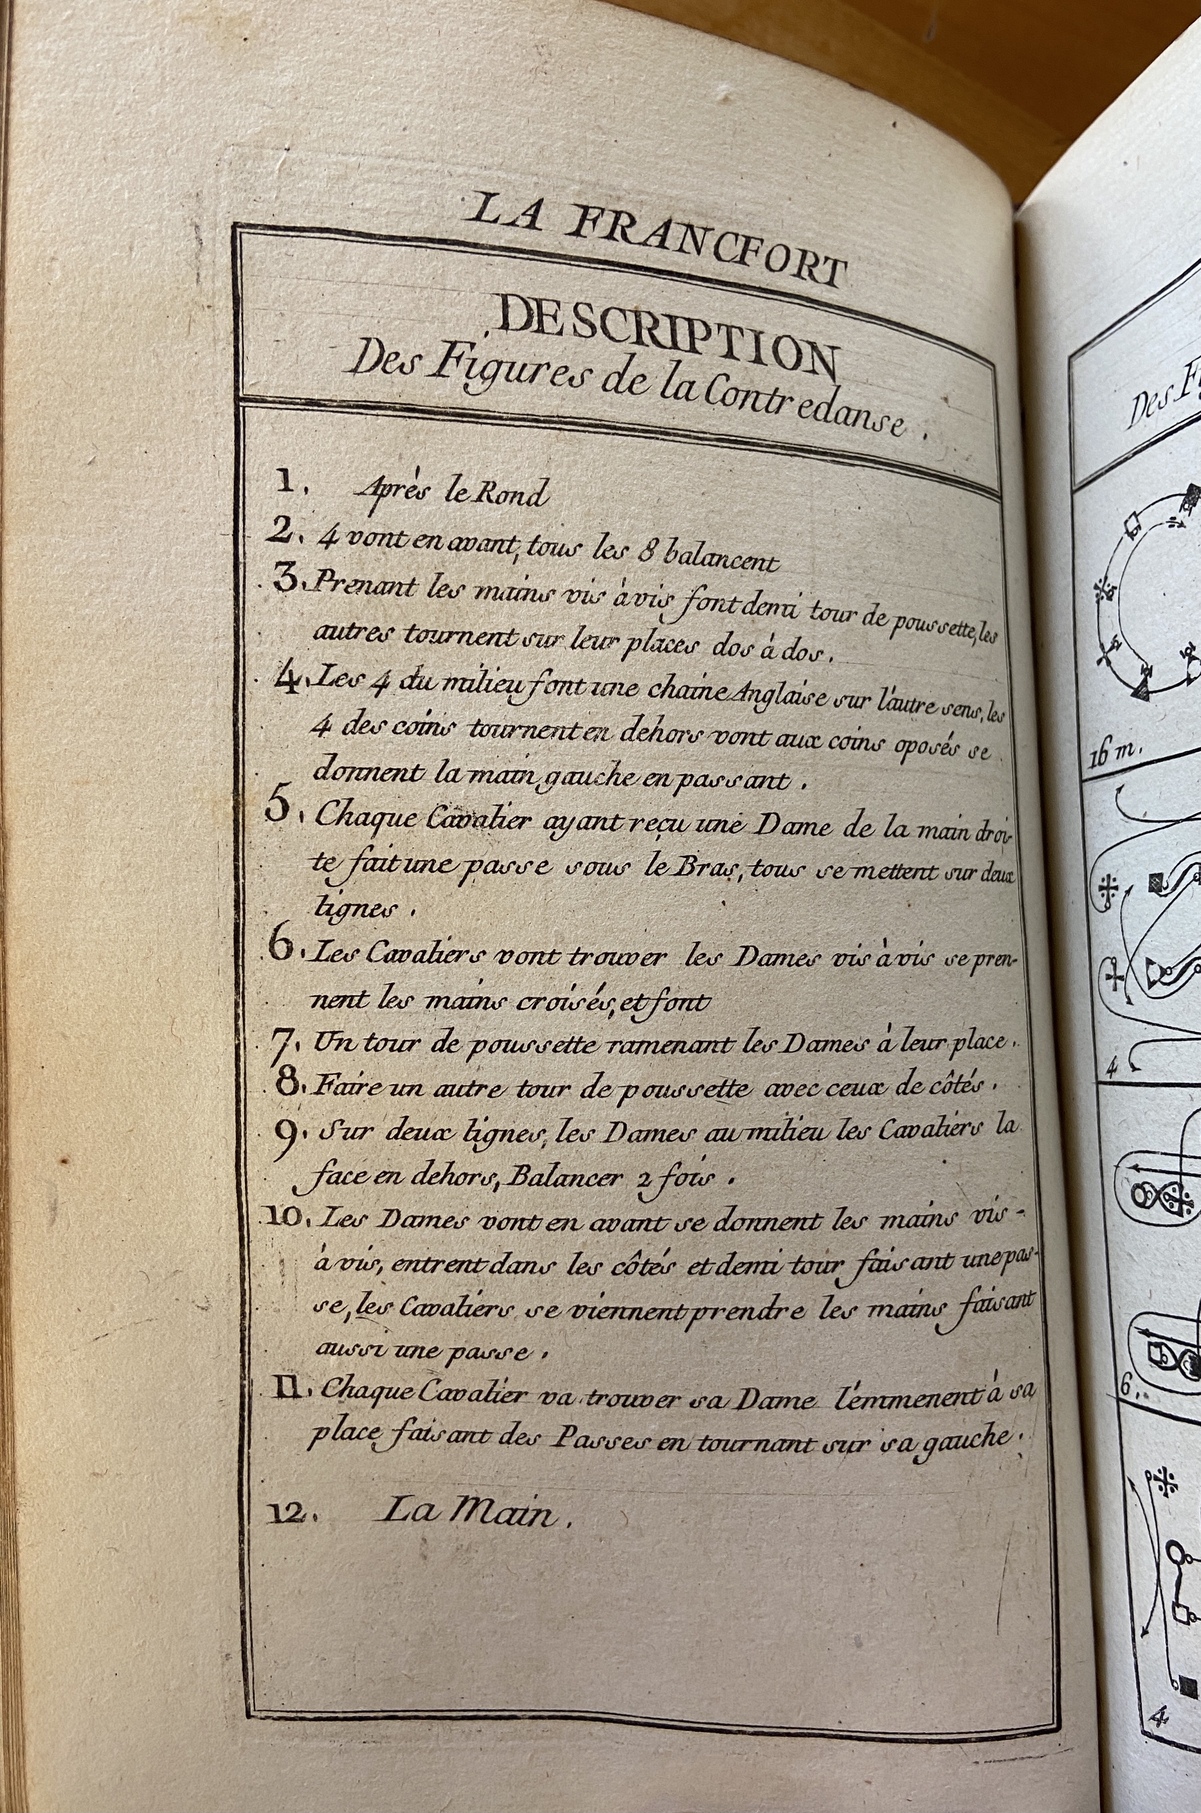 LA FRANCFORT
DESCRIPTION
Des Figures de la Contredanse.
1. Après le Rond
2. 4 vont en avant, tous les 8 balancent
3. Prenant les mains vis à vis font demi tour de poussette, les
autres tournent sur leur places dos à dos.
4. Les 4 du milieu font une chaine Anglaise sur l'autre sens, les
4 des coins tournent en dehors vont aux coins oposés se
donnent la main gauche en passant.
5. Chaque Cavalier ayant reçu une Dame de la main droi-
te fait une passe sous le Bras, tous se mettent sur deux
lignes.
6. Les Cavaliers vont trouver les Dames vis à vis se pren-
nent les mains croisés, et font
7. Un tour de poussette ramenant les Dames à leur place.
8. Faire un autre tour de poussette avec ceux de côtés.
9. Sur deux lignes, les Dames au milieu les Cavaliers la
face en dehors, Balancer 2 fois.
10. Les Dames vont en avant se donnent les mains vis-
à vis, entrent dans les côtés et demi tour faisant une pas-
se, les Cavaliers se viennent prendre les mains faisant
aussi une passe.
11. Chaque Cavalier va trouver sa Dame l'emmenent à sa
place faisant des Passes en tournant sur sa gauche.
12. La Main.
Des
16 m.
4
6.
4